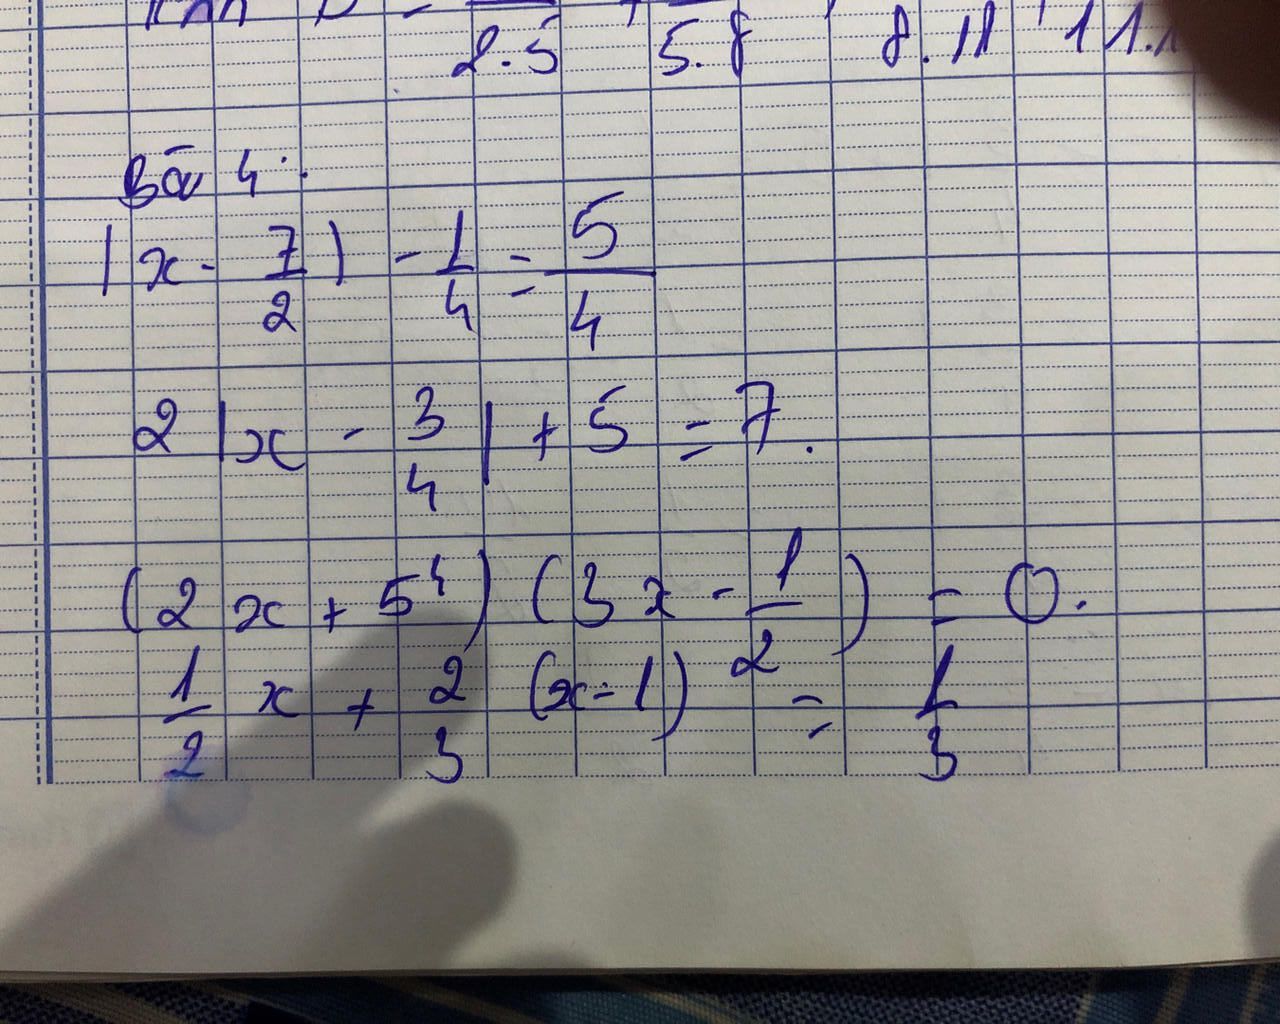 2.5 5.8 8.11
Bài 4:
|x - 7/2| - 1/4 = 5/4
2|x - 3/4| + 5 = 7.
(2x + 5⁴)(3x - 1/2) = 0.
1/2 x + 2/3 (x - 1) = 1/3